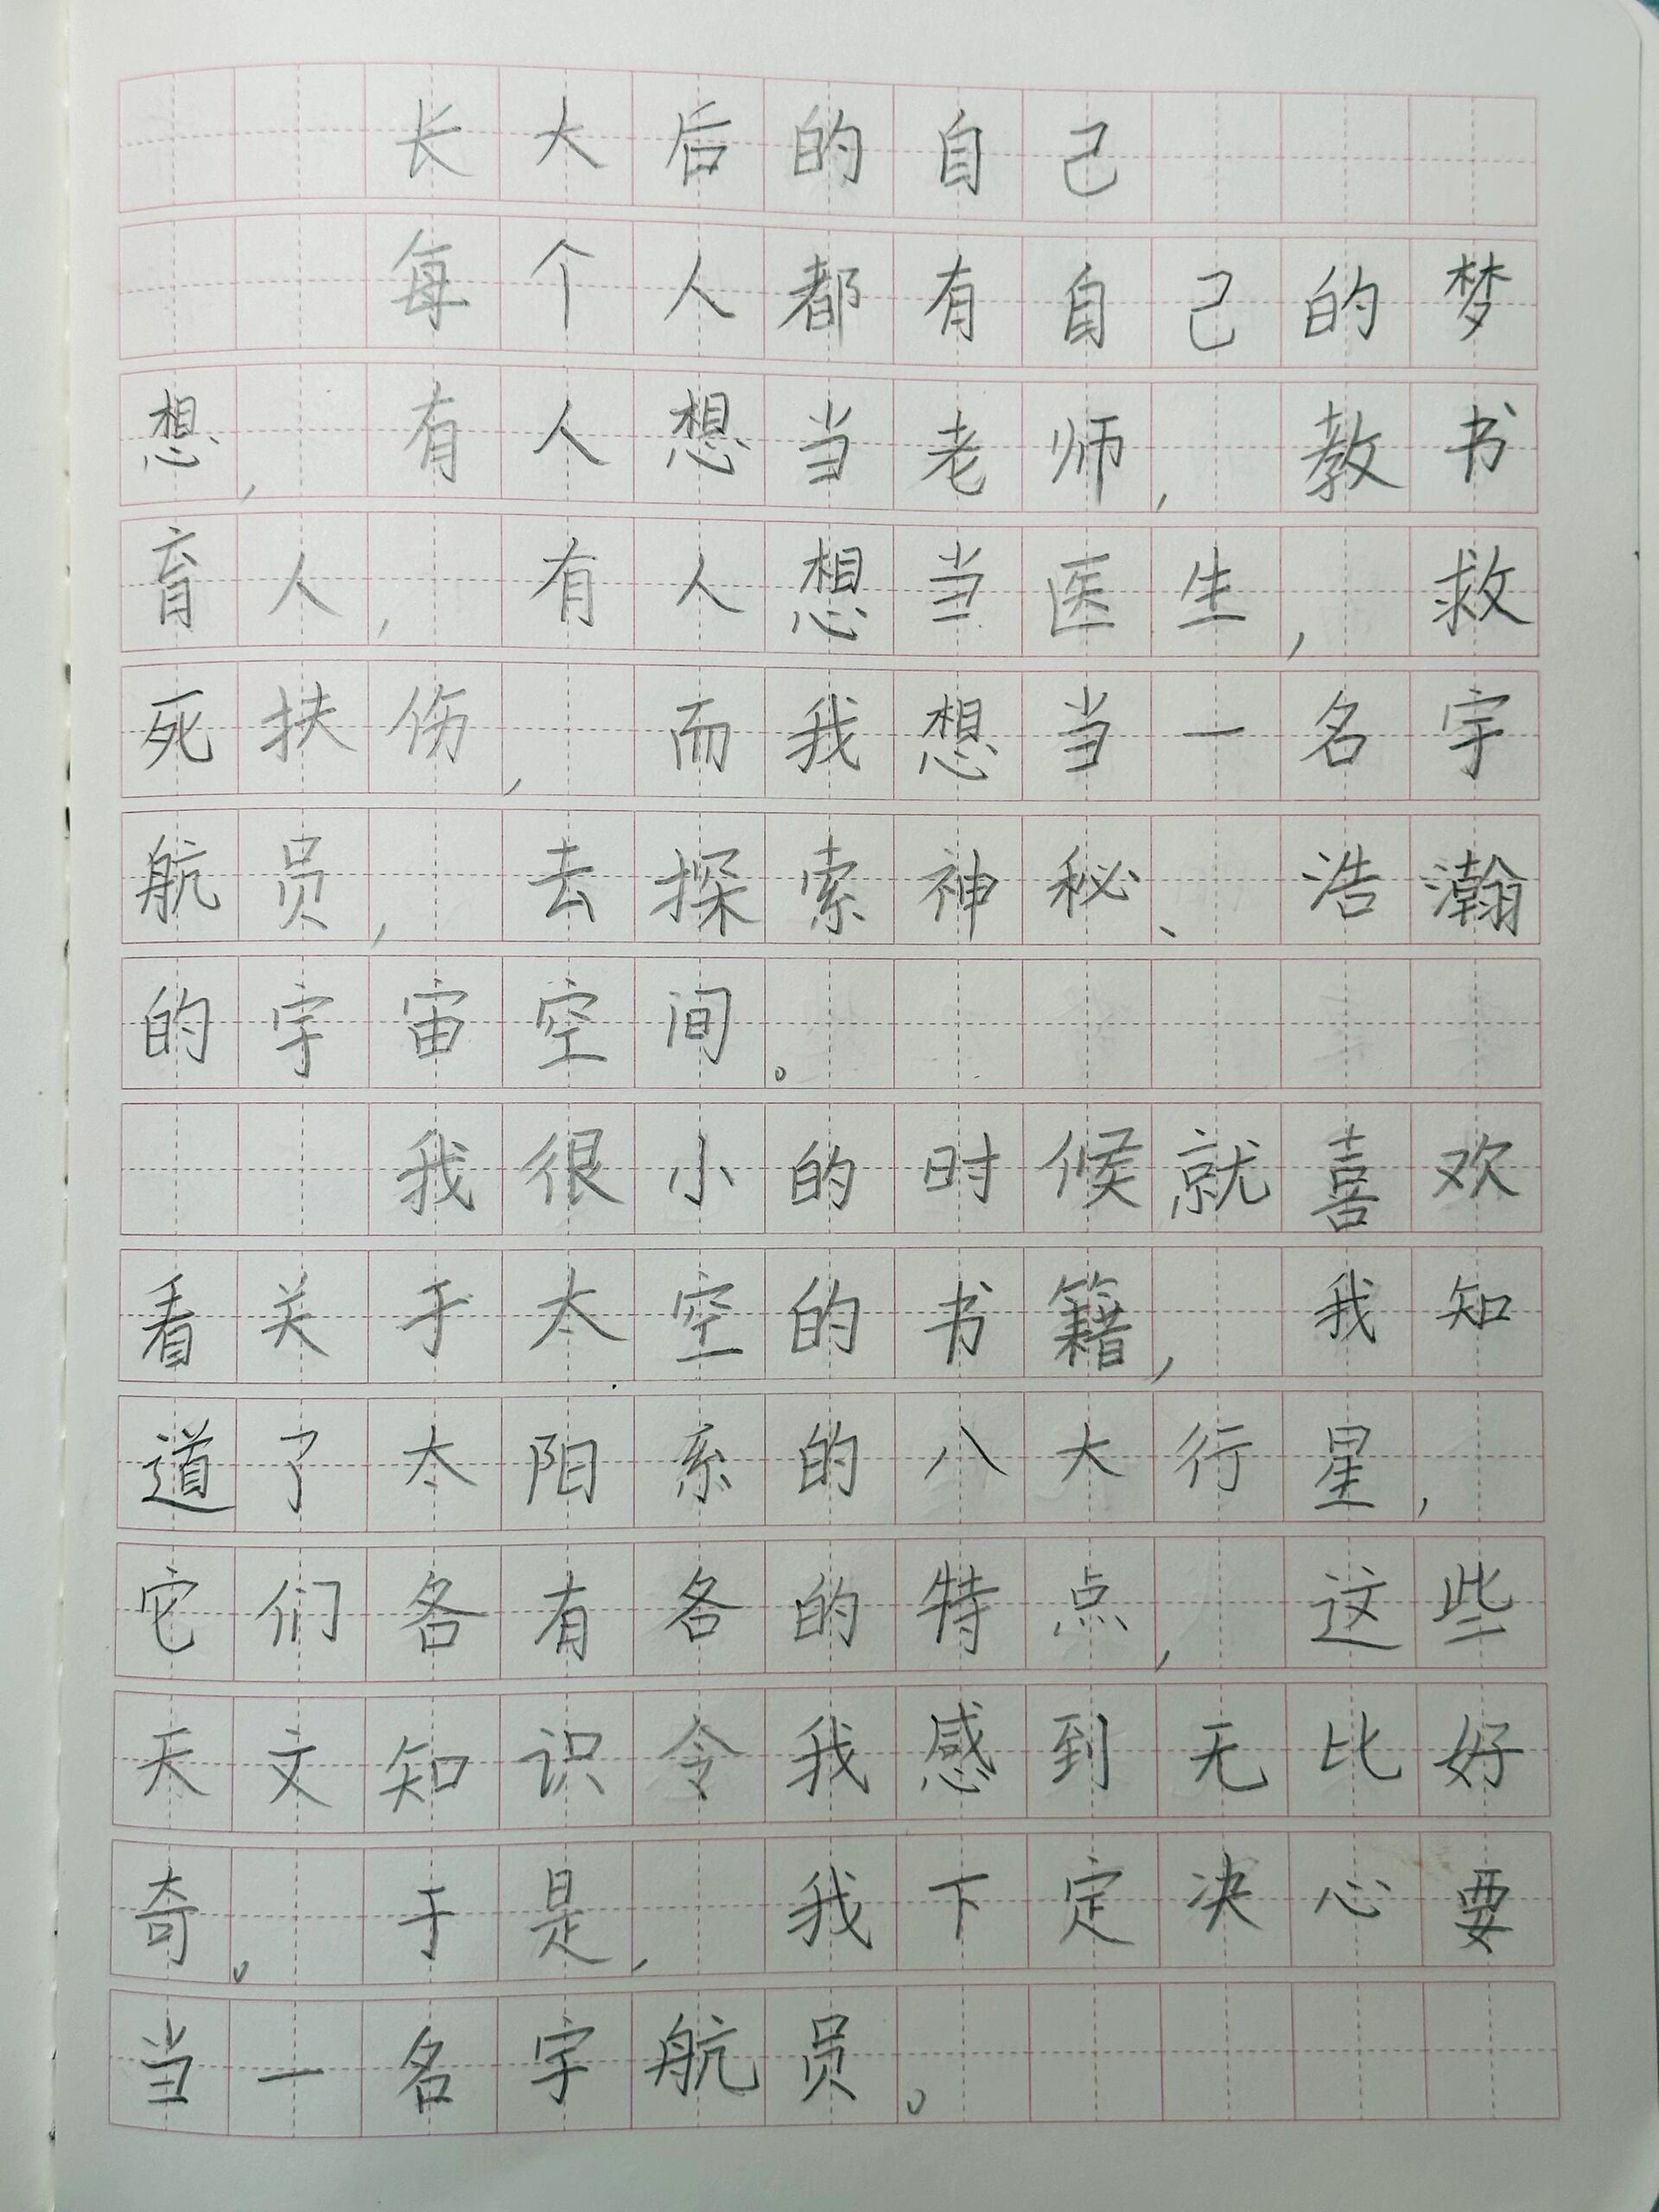 长大后的自己
每个人都有自己的梦
想,有人想当老师,教书
育人,有人想当医生,救
死扶伤,而我想当一名宇
航员,去探索神秘、浩瀚
的宇宙空间。
我很小的时候就喜欢
看关于太空的书籍,我知
道了太阳系的八大行星,
它们各有各的特点,这些
天文知识令我感到无比好
奇。于是,我下定决心要
当一名宇航员。